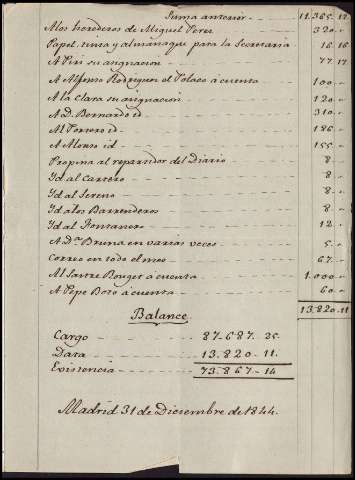 Suma anterior - 11.365.. 17
A los herederos de Miguel Perez 320..
Papel, tinta y almanaque para la Secretaria 16. 16
A Pin su asignacion 77. 17
A Alfonso Rodriguez el Polaco á cuenta 100..
A la Clara su asignacion 120..
A D. Bernardo id. 310..
Al Portero id. 186..
A Alonso id. 155..
Propina al repartidor del Diario 8..
Id al Cartero 8..
Id al Sereno 8..
Id a los Barrenderos 8..
Id al Fontanero 12..
A D.ª Bruna en varias veces 5..
Correo en todo el mes 67..
Al Sastre Bouget á cuenta 1.000..
A Pepe Bozo á cuenta 60..
13.820.. 11
Balance
Cargo 87.687. 25
Data 13.820. 11.
Existencia 73.867. 14
Madrid 31 de Diciembre de 1844.